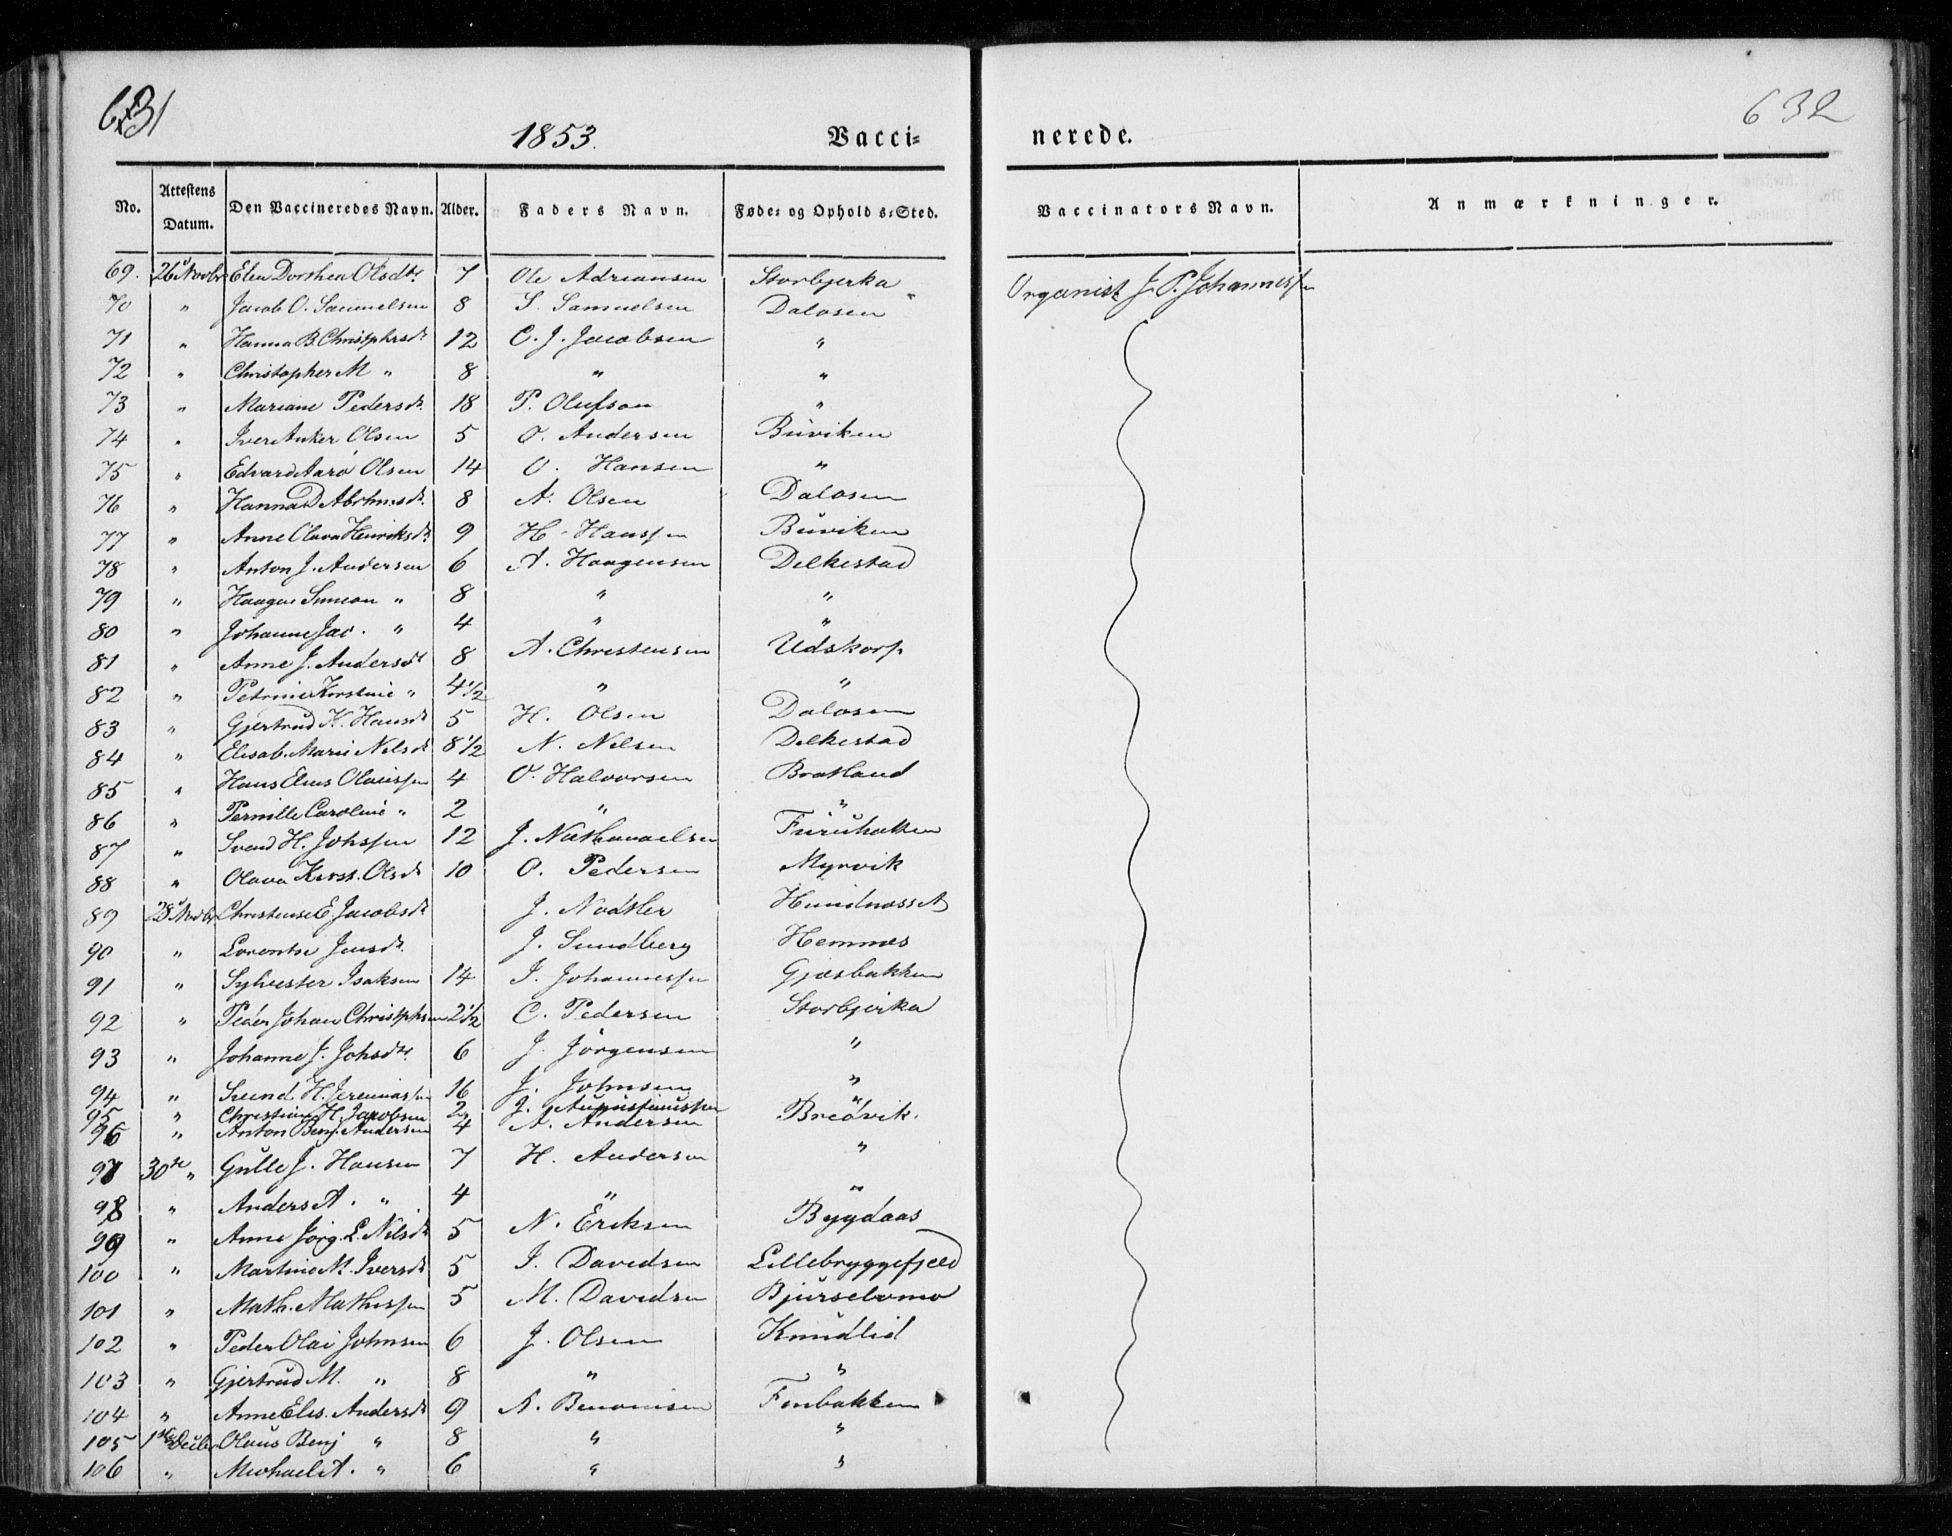 631
1853.
Vacci=
nerede.
632
No. Attestens Datum. Den Vaccineredes Navn. Alder. Faders Navn. Føde= og Opholds=Sted. Vaccinators Navn. Anmærkninger.
69. 26 Novbr Elen Dorthea Olsdtr 7 Ole Adriansen Storbjerka Organist J. P. Johannessen
70 " Jacob O. Samuelsen 8 S. Samuelsen Dalosen
71 " Hanna B. Christphrsdr 12 C. J. Jacobsen "
72 " Christopher M " 8 " "
73 " Mariane Pedersdr 18 P. Olufson "
74 " Iver Anker Olsen 5 O. Andersen Buviken
75 " Edvard Aarø Olsen 14 O. Hansen "
76 " Hanna D Abrhmsdr. 8 A. Olsen Dalosen
77 " Anne Olava Henriksdr 9 H. Hanssen Buviken
78 " Anton J. Andersen 6 A. Haagensen Delkestad
79 " Haagen Simeon " 8 " "
80 " Johanne Jac. " 4 " "
81 " Anne J. Andersdr 8 A. Christensen Udskorp
82 " Petrine Kirstine " 4 1/2 " "
83 " Gjertrud K. Hansdr 5 H. Olsen Dalosen
84 " Elisab. Marie Nelsdr 8 1/2 N. Nelsen Delkestad
85 " Hans Elius Olaussen 4 O. Halvorsen Bratland
86 " Pernille Caroline " 2 " "
87 " Svend H. Johssen 12 J. Nathanaelsen Furuhatten
88 " Olava Kirst. Olsdr 10 O. Pedersen Myrvik
89 28 Novbr Christense E Jacobsdr J. Nodtler Hundnæsset
90 " Lorentse Jensdr. J. Sundberg Hemmes
91 " Sylvester Isaksen 14 I. Johannessen Gjæsbakken
92 " Peder Johan Christphsen 2 1/2 C. Pedersen Storbjerka
93 " Johanne J. Johsdtr. 6 J. Jörgensen "
94 " Svend H. Jeremiassen 16 J. Johnsen "
95 " Christian H. Jacobsen 2 J. Augustinussen "
96 " Anton Benj. Andersen 4 A. Andersen Bredvik.
97 30te " Gulle J. Hansen 7 H. Andersen "
98 " Anders A. " 4 " "
99 " Anne Jörg. L. Nilsdr 5 N. Eriksen Bygdaas
100 " Martine M. Iversdr 5 I. Davidsen Lillebryggefjeld
101 " Math. Mathissen 5 M. Davidsen Bjurselvmo
102 " Peder Olai Johnsen 6 J. Olsen Knudlid
103 " Gjertrud M. " 8 " "
104 " Anne Elis. Andersdr 9 A. Benonisen Finbakken
105 1ste Decbr Olaus Benj " 8 " "
106 " Michael A. " 6 " "